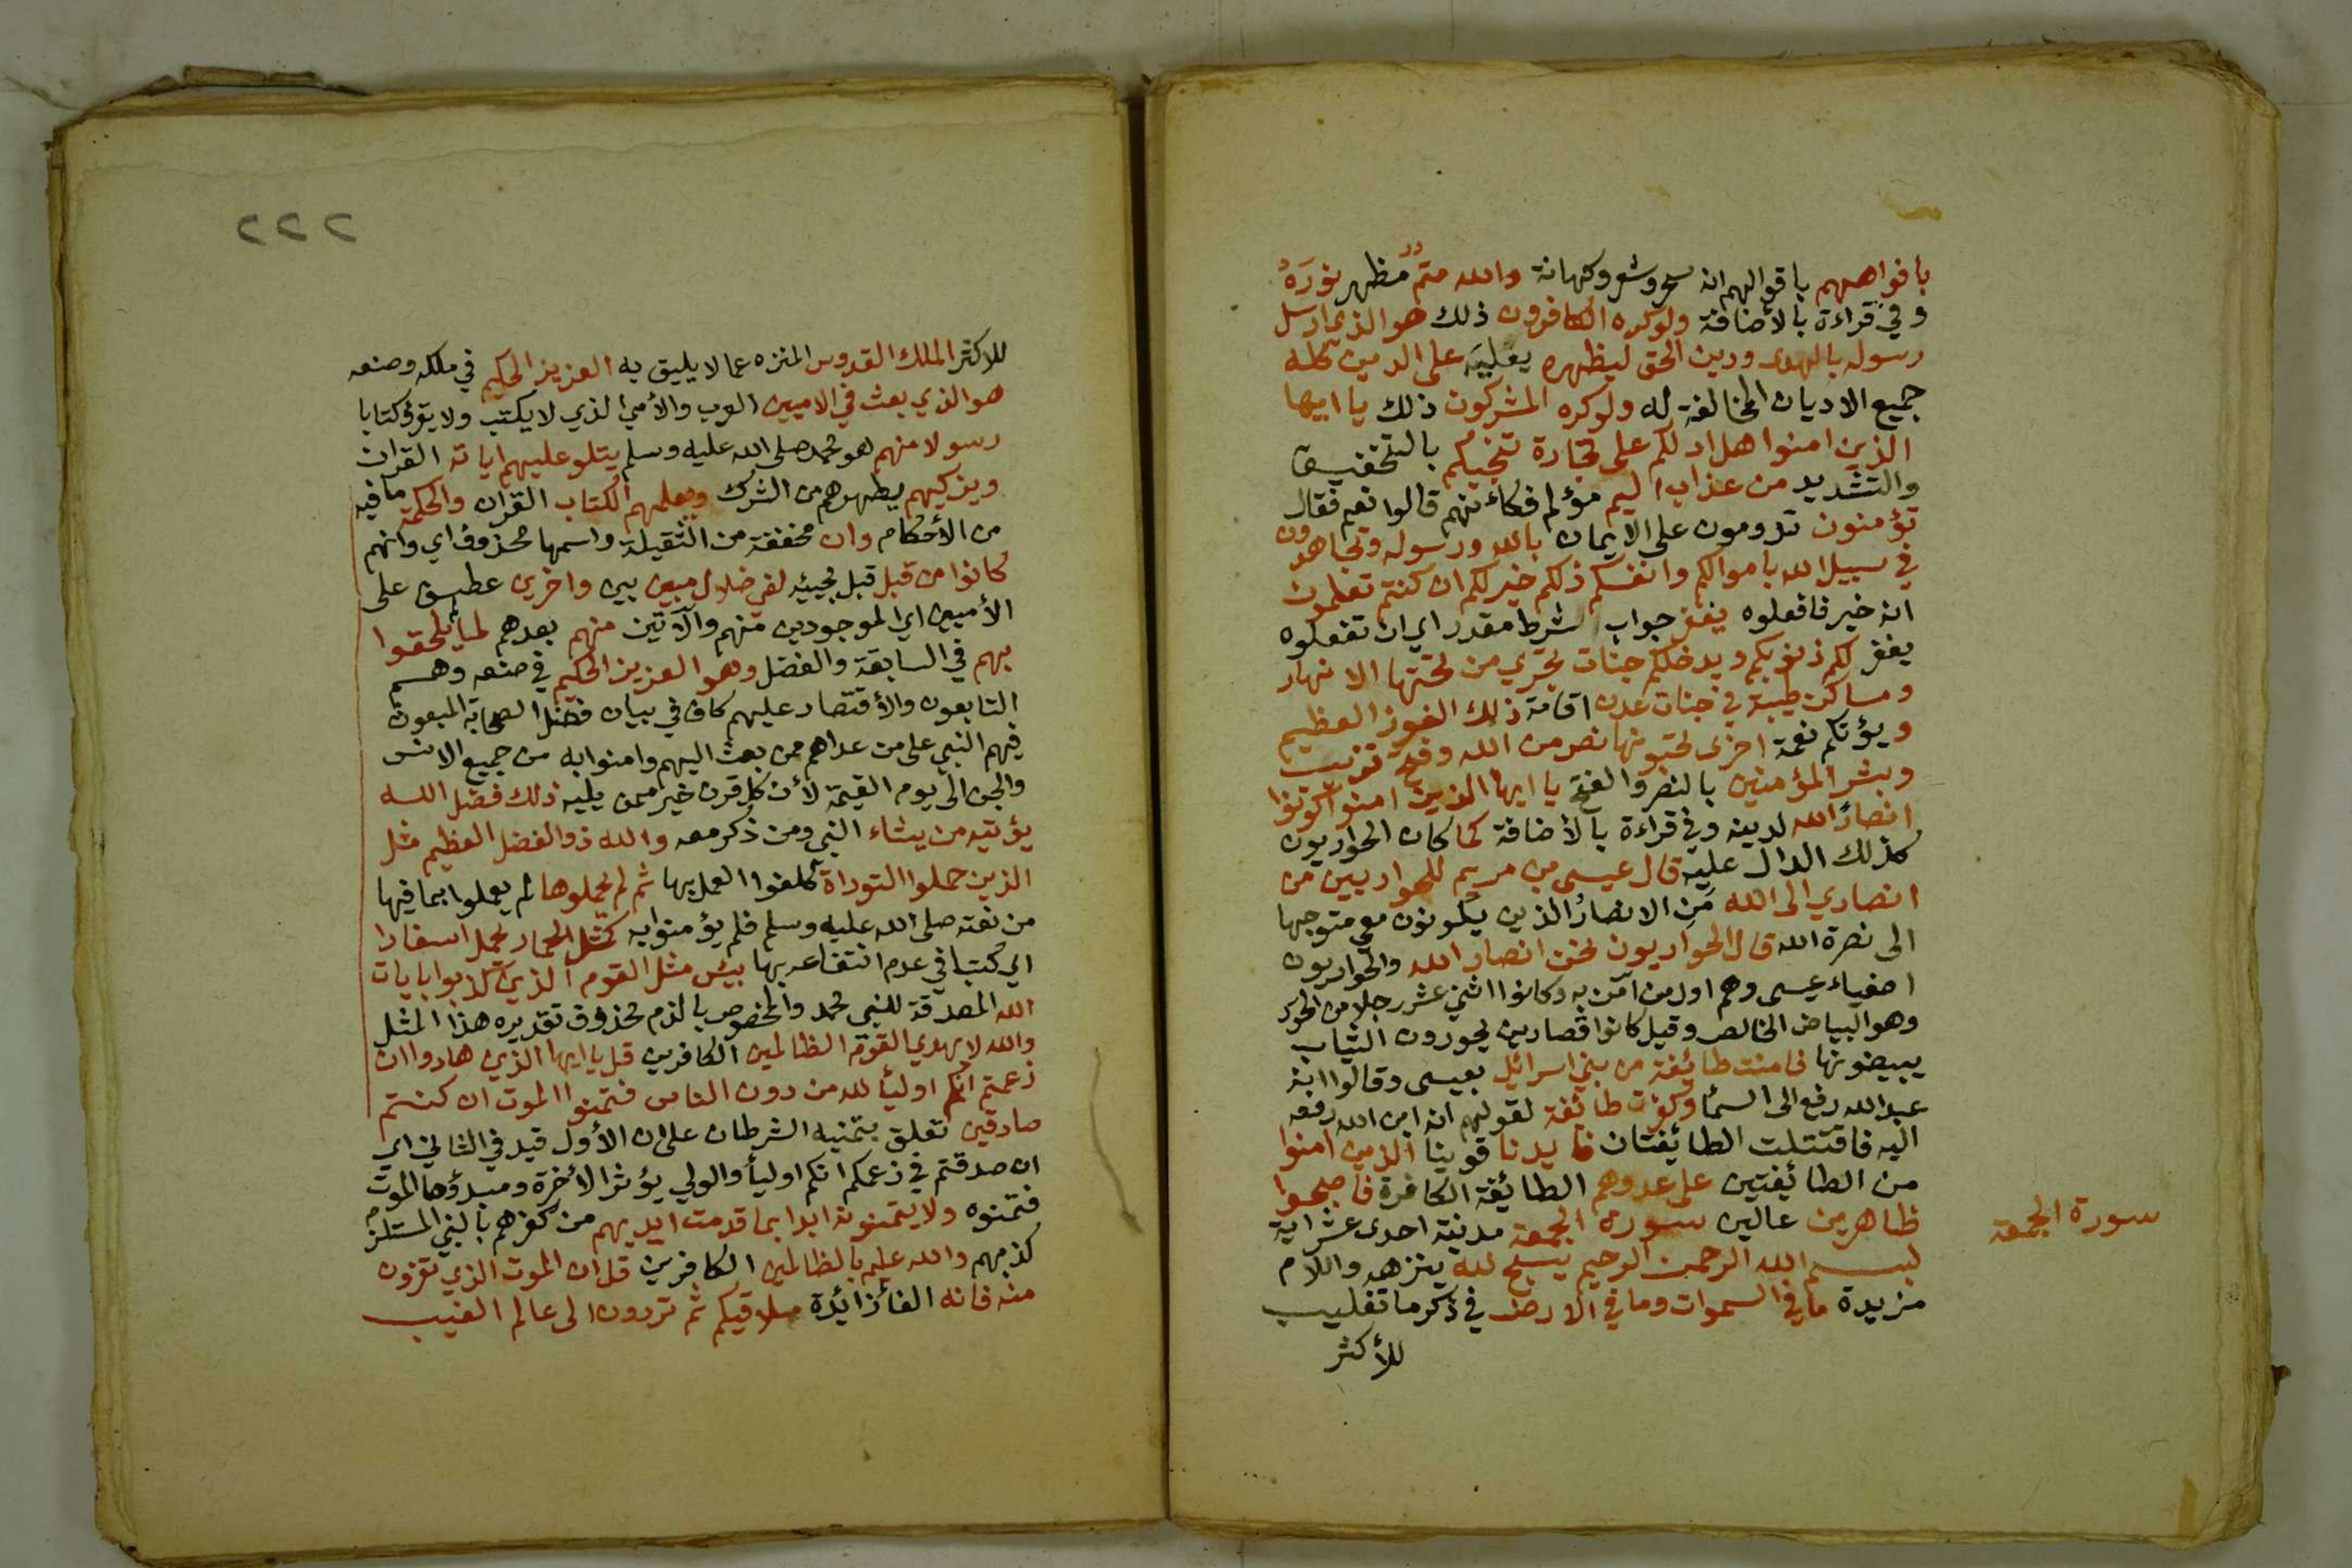 بافواههم باقوالهم انه سحر وشعر وكهانة والله متمٌ مظهر نورَهُ
وفي قراءة بالأضافة ولوكره الكافرون ذلك هو الذي ارسل
رسوله بالهدى ودين الحق ليظهره يعليَه على الدين كله
جميع الاديان المخالفة له ولوكره المشركون ذلك يا ايها
الذين امنوا هل ادلكم على تجارة تنجيكم بالتخفيف
والتشديد من عذاب اليم مؤلم فكاءنهم قالوا نعم فقال
تؤمنون تدومون على الايمان بالله ورسوله وتجاهدون
في سبيل الله باموالكم وانفسكم ذلكم خير لكم ان كنتم تعلمون
انه خير فافعلوه يغفر جواب شرط مقدر اي ان تفعلوه
يغفر لكم ذنوبكم ويدخلكم جنات تجري من تحتها الانهار
ومساكن طيبة في جنات عدن اقامة ذلك الفوز العظيم
ويؤتكم نعمة اخرى تحبونها نصر من الله وفتح قريب
وبشر المؤمنين بالنصر والفتح يا ايها الذين امنوا كونوا
انصارًا لله لدينه وفي قراءة بالأضافة كما كان الحواريون
كذلك الدال عليه قال عيسى بن مريم للحواريين من
انصاري الى الله مَنِ الانصارُ الذين يكونون معي متوجها
الى نصرة الله قال الحواريون نحن انصار الله والحواريون
اصفياء عيسى وهم اول من آمن به وكانوا اثني عشر رجلا من الحور
وهو البياض الخالص وقيل كانوا قصارين يحورون الثياب
يبيضونها فامنت طائفة من بني اسرائيل بعيسى وقالوا انه
عبد الله رفع الى السمأ وكفرت طائفة لقولهم انه ابن الله رفعه
اليه فاقتتلت الطايفتان فايدنا قوينا الذين امنوا
من الطائفتين على عدوهم الطايفة الكافرة فاصبحوا
ظاهرين عالين سورة الجمعة مدنية احدى عشر اية
سورة الجمعة
بسم الله الرحمن الرحيم يسبح لله ينزهه واللام
مزيدة ما في السموات وما في الارض في ذكر ما تغليب
للأكثر
٢٢٢
للاكثر الملك القدوس المنزه عما لا يليق به العزيز الحكيم في ملكه وصنعه
هو الذي بعث في الاميين العرب والأمي الذي لا يكتب ولا يقرؤ كتابا
رسولا منهم هو محمد صلى الله عليه وسلم يتلو عليهم اياته القران
ويزكيهم يطهرهم من الشرك ويعلمهم الكتاب القران والحكمة ما فيه
من الأحكام وان مخففة من الثقيلة واسمها محذوف اي وانهم
كانوا من قبل قبل مجيئه لفي ضلال مبين بين واخرين عطف على
الأميين اي الموجودين منهم والآتين منهم بعدهم لما يلحقوا
بهم في السابقة والفضل وهو العزيز الحكيم في صنعه وهم
التابعون والأقتصار عليهم كاف في بيان فضل الصحابة المبعوث
فيهم النبي على من عداهم ممن بعث اليهم وامنوا به من جميع الانس
والجن الى يوم القيمة لأن كل قرن خير ممن يليه ذلك فضل الله
يؤتيه من يشاء النبي ومن ذكر معه والله ذو الفضل العظيم مثل
الذين حملوا التوراة كلفوا العمل بها ثم لم يحملوها لم يعملوا بما فيها
من نعته صلى الله عليه وسلم فلم يؤمنوا به كمثل الحمار يحمل اسفارا
اي كتبا في عدم انتفاعه بها بيئس مثل القوم الذين كذبوا بايات
الله المصدقة للنبي محمد والمخصوص بالذم محذوف تقديره هذا المثل
والله لا يهدي القوم الظالمين الكافرين قل يا ايها الذين هادوا ان
زعمتم انكم اوليأ لله من دون الناس فتمنوا الموت ان كنتم
صادقين تعلق بتمنيه الشرطان على ان الأول قيد في الثاني اي
ان صدقتم في زعمكم انكم اوليأ والولي يؤثر الأخرة ومبدؤها الموت
فتمنوه ولا يتمنونه ابدا بما قدمت ايديهم من كفرهم بالنبي المستلزم
كذبهم والله عليم بالظالمين الكافرين قل ان الموت الذي تفرون
منه فانه الفأ زائدة ملاقيكم ثم تردون الى عالم الغيب